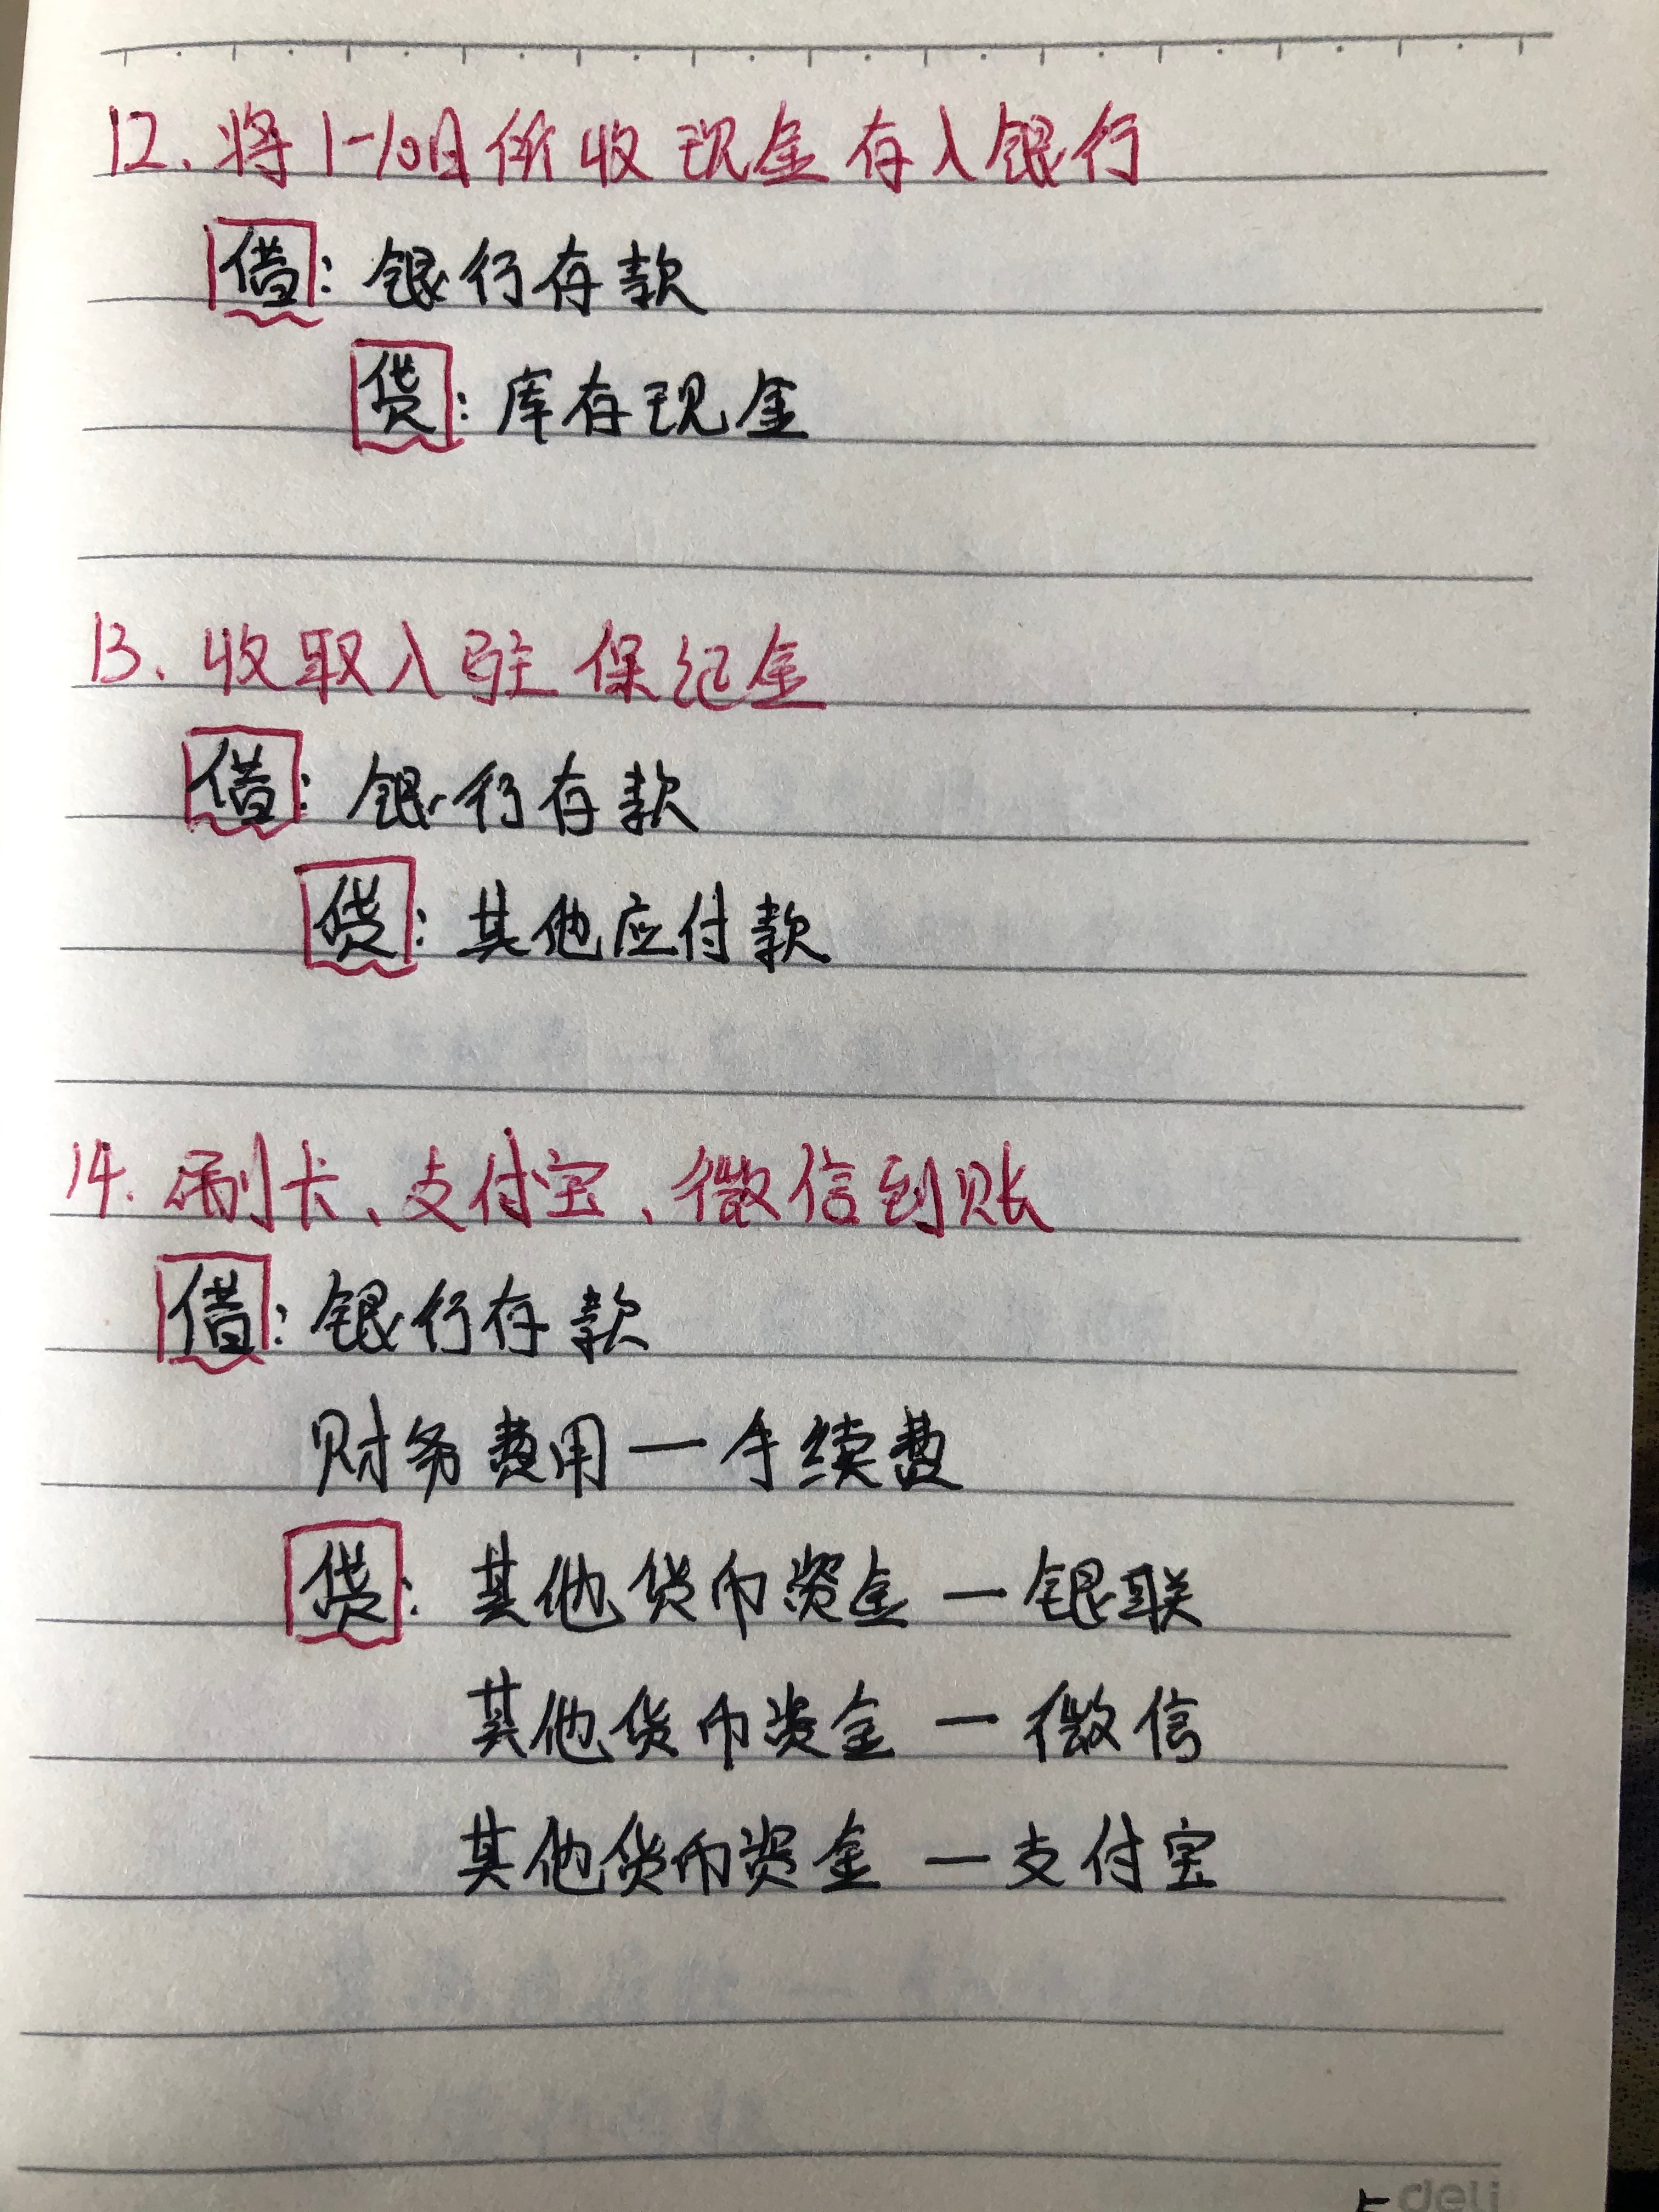 12、将1-10日所收现金存入银行
借：银行存款
贷：库存现金
13、收取入驻保纪金
借：银行存款
贷：其他应付款
14.刷卡、支付宝、微信到账
借：银行存款
财务费用一手续费
贷：其他货币资金一银联
其他货币资金一微信
其他货币资金一支付宝
deli